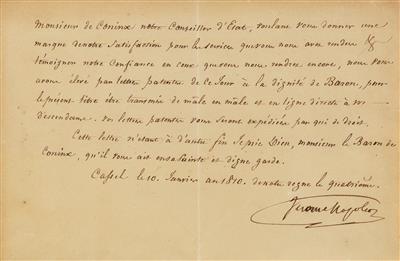 Monsieur de Coninx notre Conseiller d'Etat, voulant vous donner une
marque de notre Satisfaction pour les services que vous nous avez rendus &
témoigner notre Confiance en ceux que vous nous rendrez encore, nous vous
avons élevé par lettres patentes de ce Jour à la dignité de Baron, pour
le présent titre être transmis de male en male et en ligne directe à vos
descendans. Vos lettres patentes vous seront expédiées par qui de droit.
Cette lettre n'étant à d'autre fin Je prie Dieu, monsieur le Baron de
Coninx, qu'il vous ait en sa sainte et digne garde.
Cassel le 10. Janvier an 1810. de notre regne le quatrième.
Jerome Napoleon